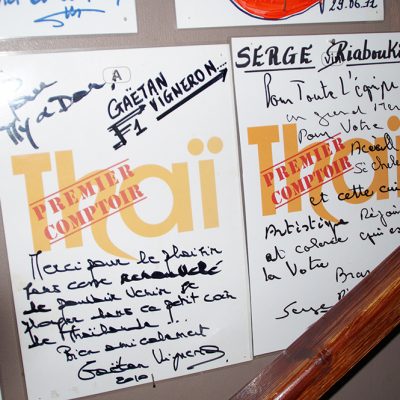 29.06.12
Pour
My a Dan
A
GAËTAN
VIGNERON...
F1
Thaï
PREMIER
COMPTOIR
Merci pour le plaisir
sans cesse renouvelé
de pouvoir venir
dans ce petit coin
de Thaïlande...
Bien amicalement
Gaëtan Vigneron
2010
SERGE Riabouki
Pour Toute L'équipe
un grand
Pour Votre
Accueil
Si
et cette cui
Artistique Réjoui
et colorée qui es
la Votre
Bra
Serge
Thaï
PREMIER
COMPTOIR